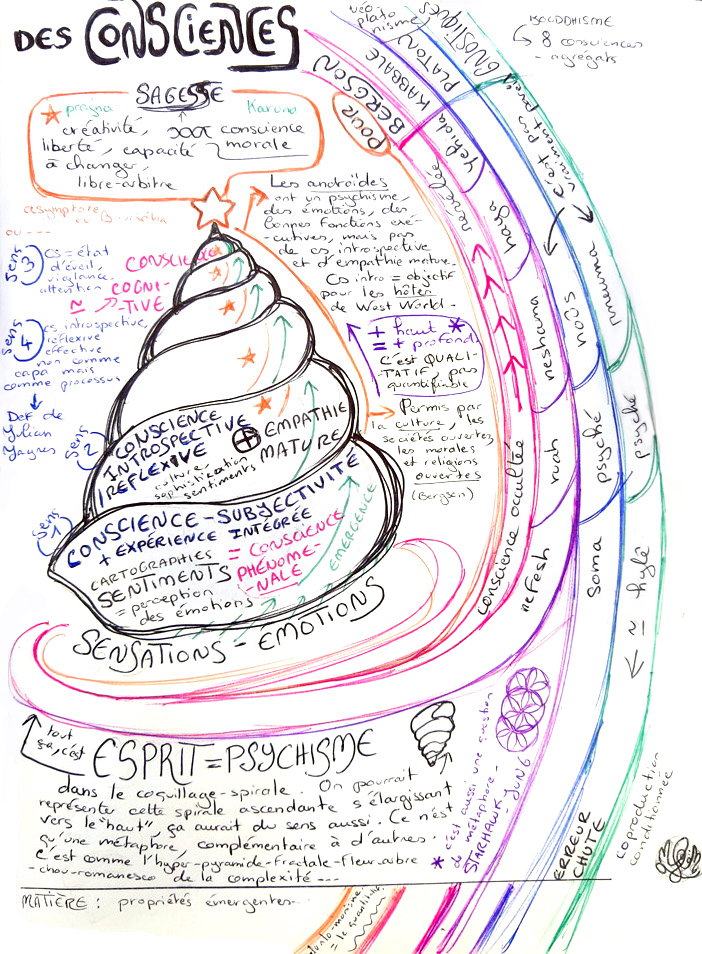 DES CONSCIENCES
SAGESSE
prajna
Karuna
créativité,
conscience
liberté, capacité
morale
à changer,
libre-arbitre
asymptote
ou ----
Les androïdes
ont un psychisme,
des émotions, des
bonnes fonctions exé-
cutives, mais pas
de cs introspective
et d'empathie mature.
Cs intro = objectif
pour les hôtes
de West World -
Sens 3
cs = état
d'éveil,
vigilance,
attention
CONSCIENCE
≃ COGNI-
TIVE
Sens 4
cs introspective,
réflexive
effective
non comme
capa mais
comme processus
Def de
Julian
Jaynes
+ haut *
= + profond
C'est QUALI-
TATIF, pas
quantifiable
Permis par
la culture, les
sociétés ouvertes,
les morales
et religions
ouvertes
(Bergson)
Sens 2
CONSCIENCE
INTROSPECTIVE
RÉFLEXIVE
⊕ EMPATHIE
MATURE
culture
sophistication
sentiments
Sens 1
CONSCIENCE-SUBJECTIVITÉ
+ EXPÉRIENCE INTÉGRÉE
CARTOGRAPHIES
SENTIMENTS
= perception
des émotions
= CONSCIENCE
PHÉNOMÉ-
NALE
EMERGENCE
SENSATIONS - ÉMOTIONS
tout
ça, c'est
ESPRIT = PSYCHISME
dans le coquillage-spirale. On pourrait
représenter cette spirale ascendante s'élargissant
vers le "haut", ça aurait du sens aussi. Ce n'est
qu'une métaphore, complémentaire à d'autres.
C'est comme l'hyper-pyramide-fractale-fleur-arbre
-chou-romanesco de la complexité ---
MATIÈRE : propriétés émergentes---
= le quantique
* c'est aussi une question
de métaphore -
STARHAWK, JUNG
POUR
BERGSON
KABBALE
PLATON
néo
plato
nisme
GNOSTIQUES
BOUDDHISME
↳ 8 consciences
- agrégats
c'est pas
vraiment pareil
révélée
conscience occultée
Yehida
haya
neshama
ruah
nefesh
noûs
psyché
soma
pneuma
psyché
≃ hylé
ERREUR
CHUTE
coproduction
conditionnée